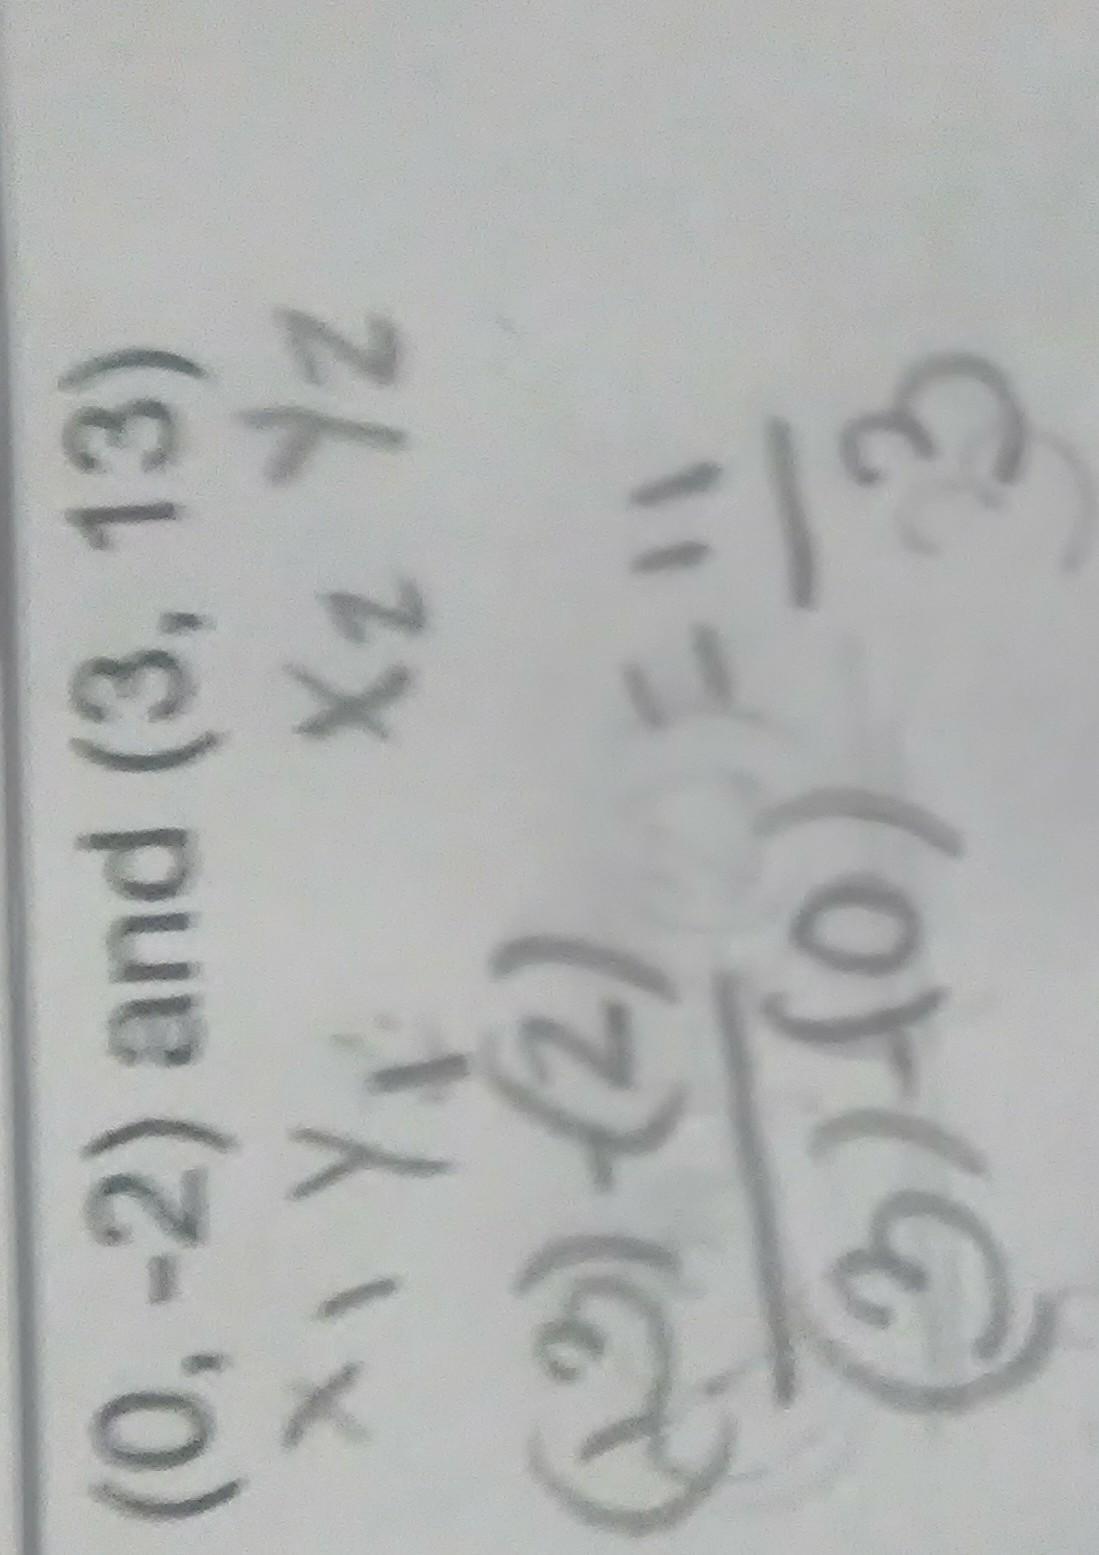 (0, -2) and (3, 13)
x1 y1 x2 y2
(13) -(2) = 11
(3) -(0) 3